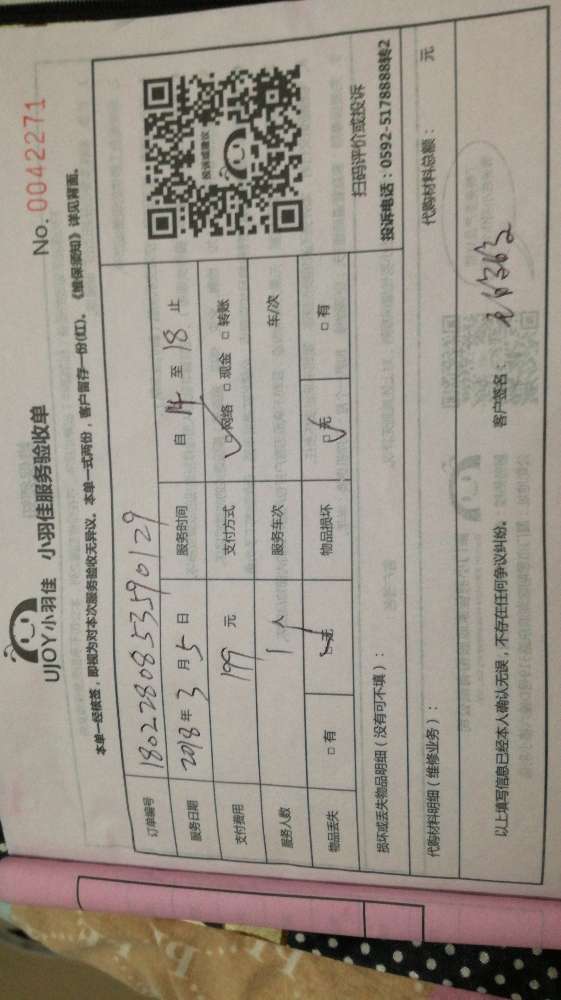 UJOY小羽佳 小羽佳服务验收单 No. 0042271
本单一经核签，即视为对本次服务验收无异议。本单一式两份，客户留存一份(红)。《维保须知》详见背面。
订单编号 180228085359 0129
服务日期 2018 年 3 月 5 日 服务时间 自 14 至 18 止
支付费用 199 元 支付方式 ☑网络 □现金 □转账
服务人数 1 人 服务车次 车/次
物品丢失 □有 ☑无 物品损坏 ☑无 □有
扫码评价或投诉
投诉电话：0592-5178888转2
损坏或丢失物品明细（没有可不填）：
代购材料明细（维修业务）： 代购材料总额： 元
以上填写信息已经本人确认无误，不存在任何争议纠纷。 客户签名：